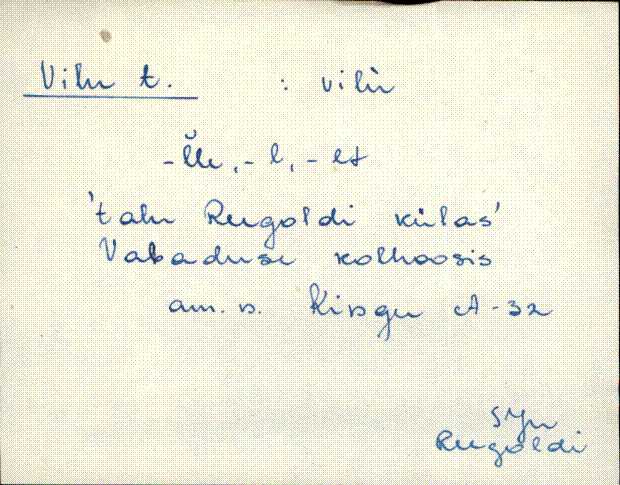 Vilu t. : vilù
-l̆le, -l, -lt
'talu Reegoldi külas'
Vabaduse kolhoosis
am. n. Kirsgu A-32
SJn
Reegoldi